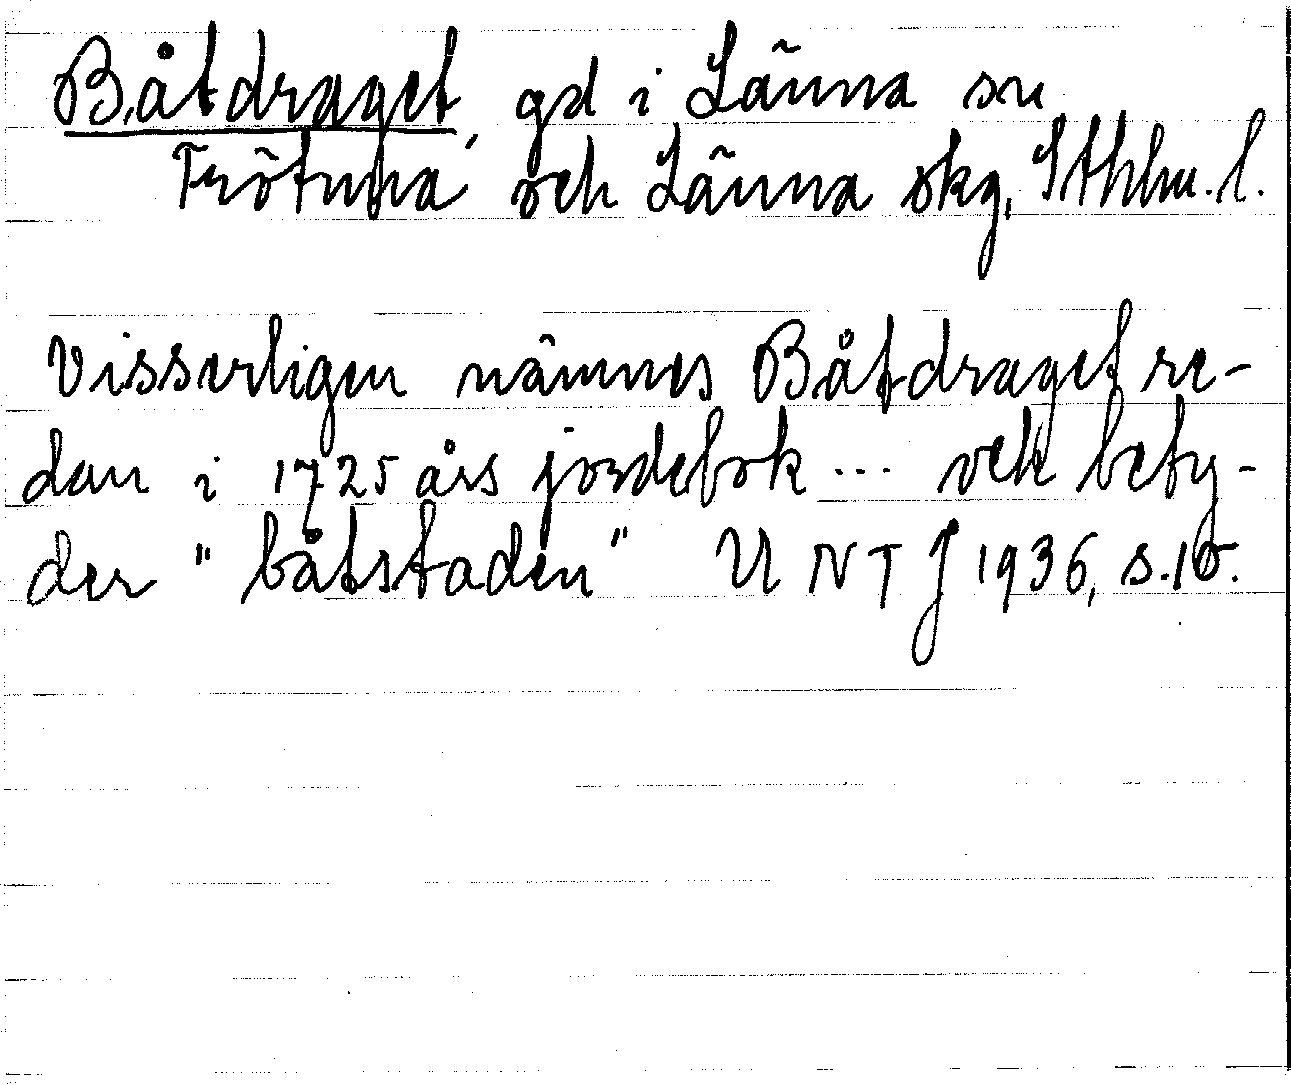 Båtdraget, gd i Länna sn
Frötuna och Länna skg, Sthlm. l.
Visserligen nämnes Båtdraget re-
dan i 1725 års jordebok ... och bety-
der "båtstaden" UNTJ 1936, s.